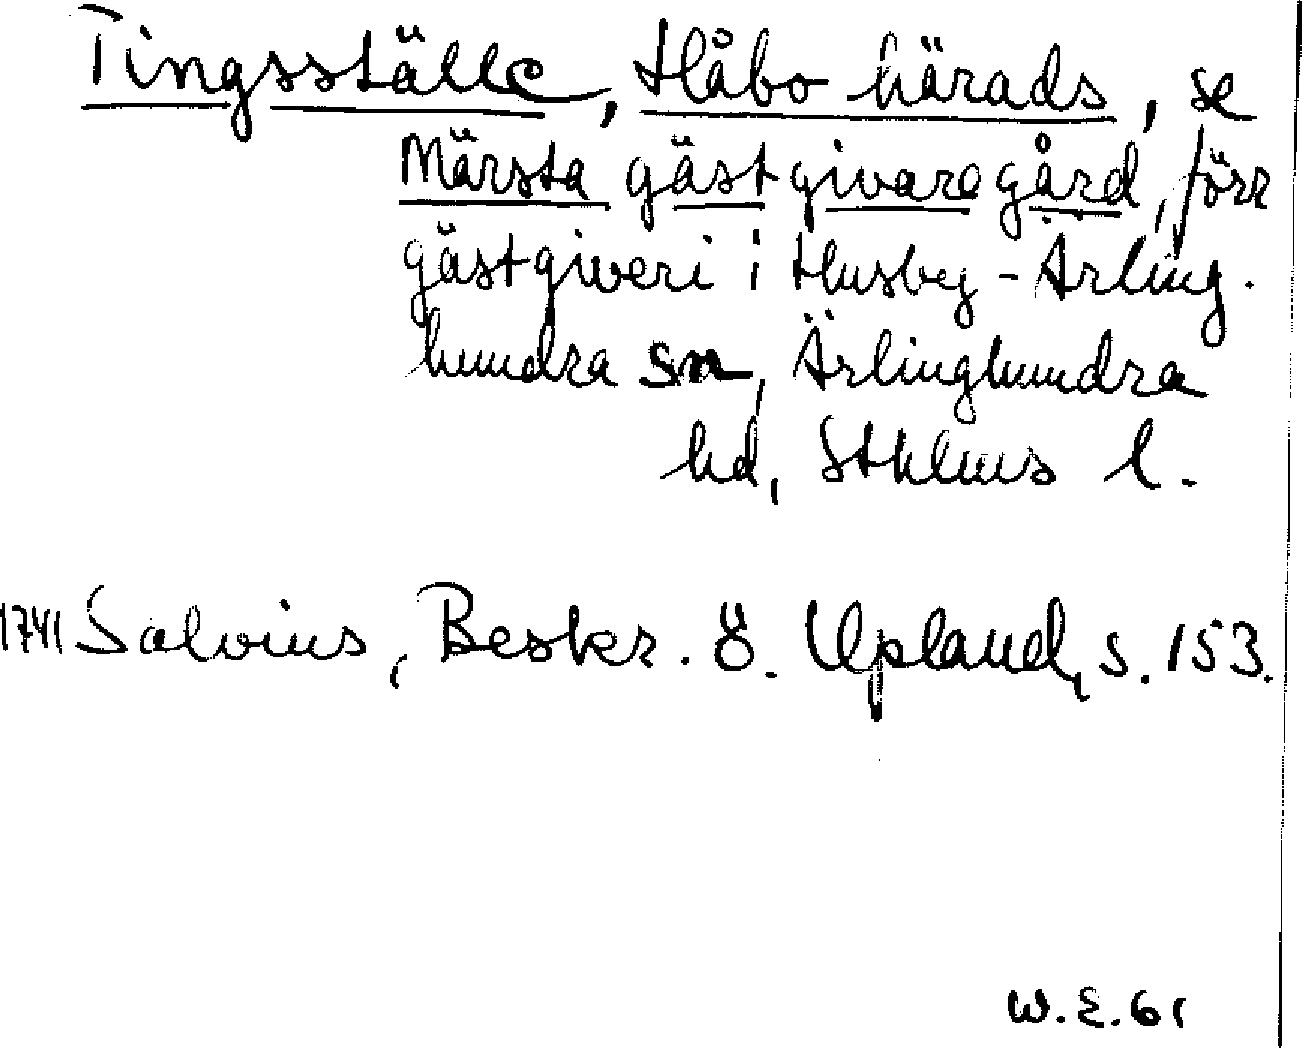 Tingsställe, Håbo härads, se
Märsta gästgivaregård, förr
gästgiveri i Husby-Ärling-
hundra sn, Ärlinghundra
hd, Sthlms l.
1741 Salvius, Beskr. ö. Upland, s. 153.
W.E.61